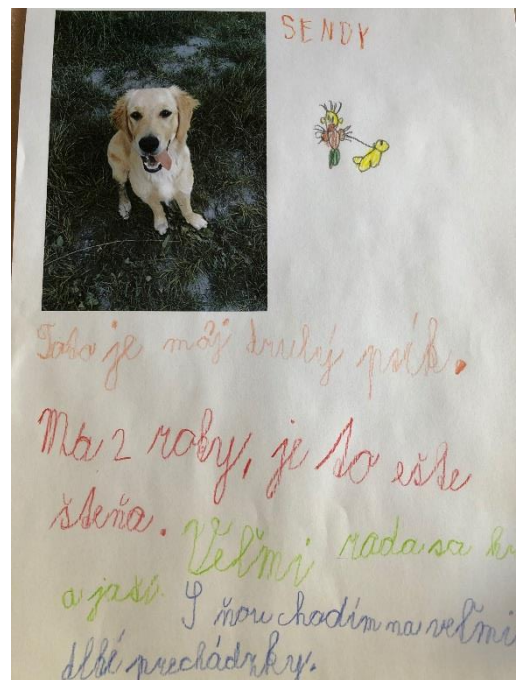 SENDY
Toto je môj druhý psík.
Má 2 roky, je to ešte
šteňa. Veľmi rada sa
a jaší. S ňou chodím na veľmi
dlhé prechádzky.